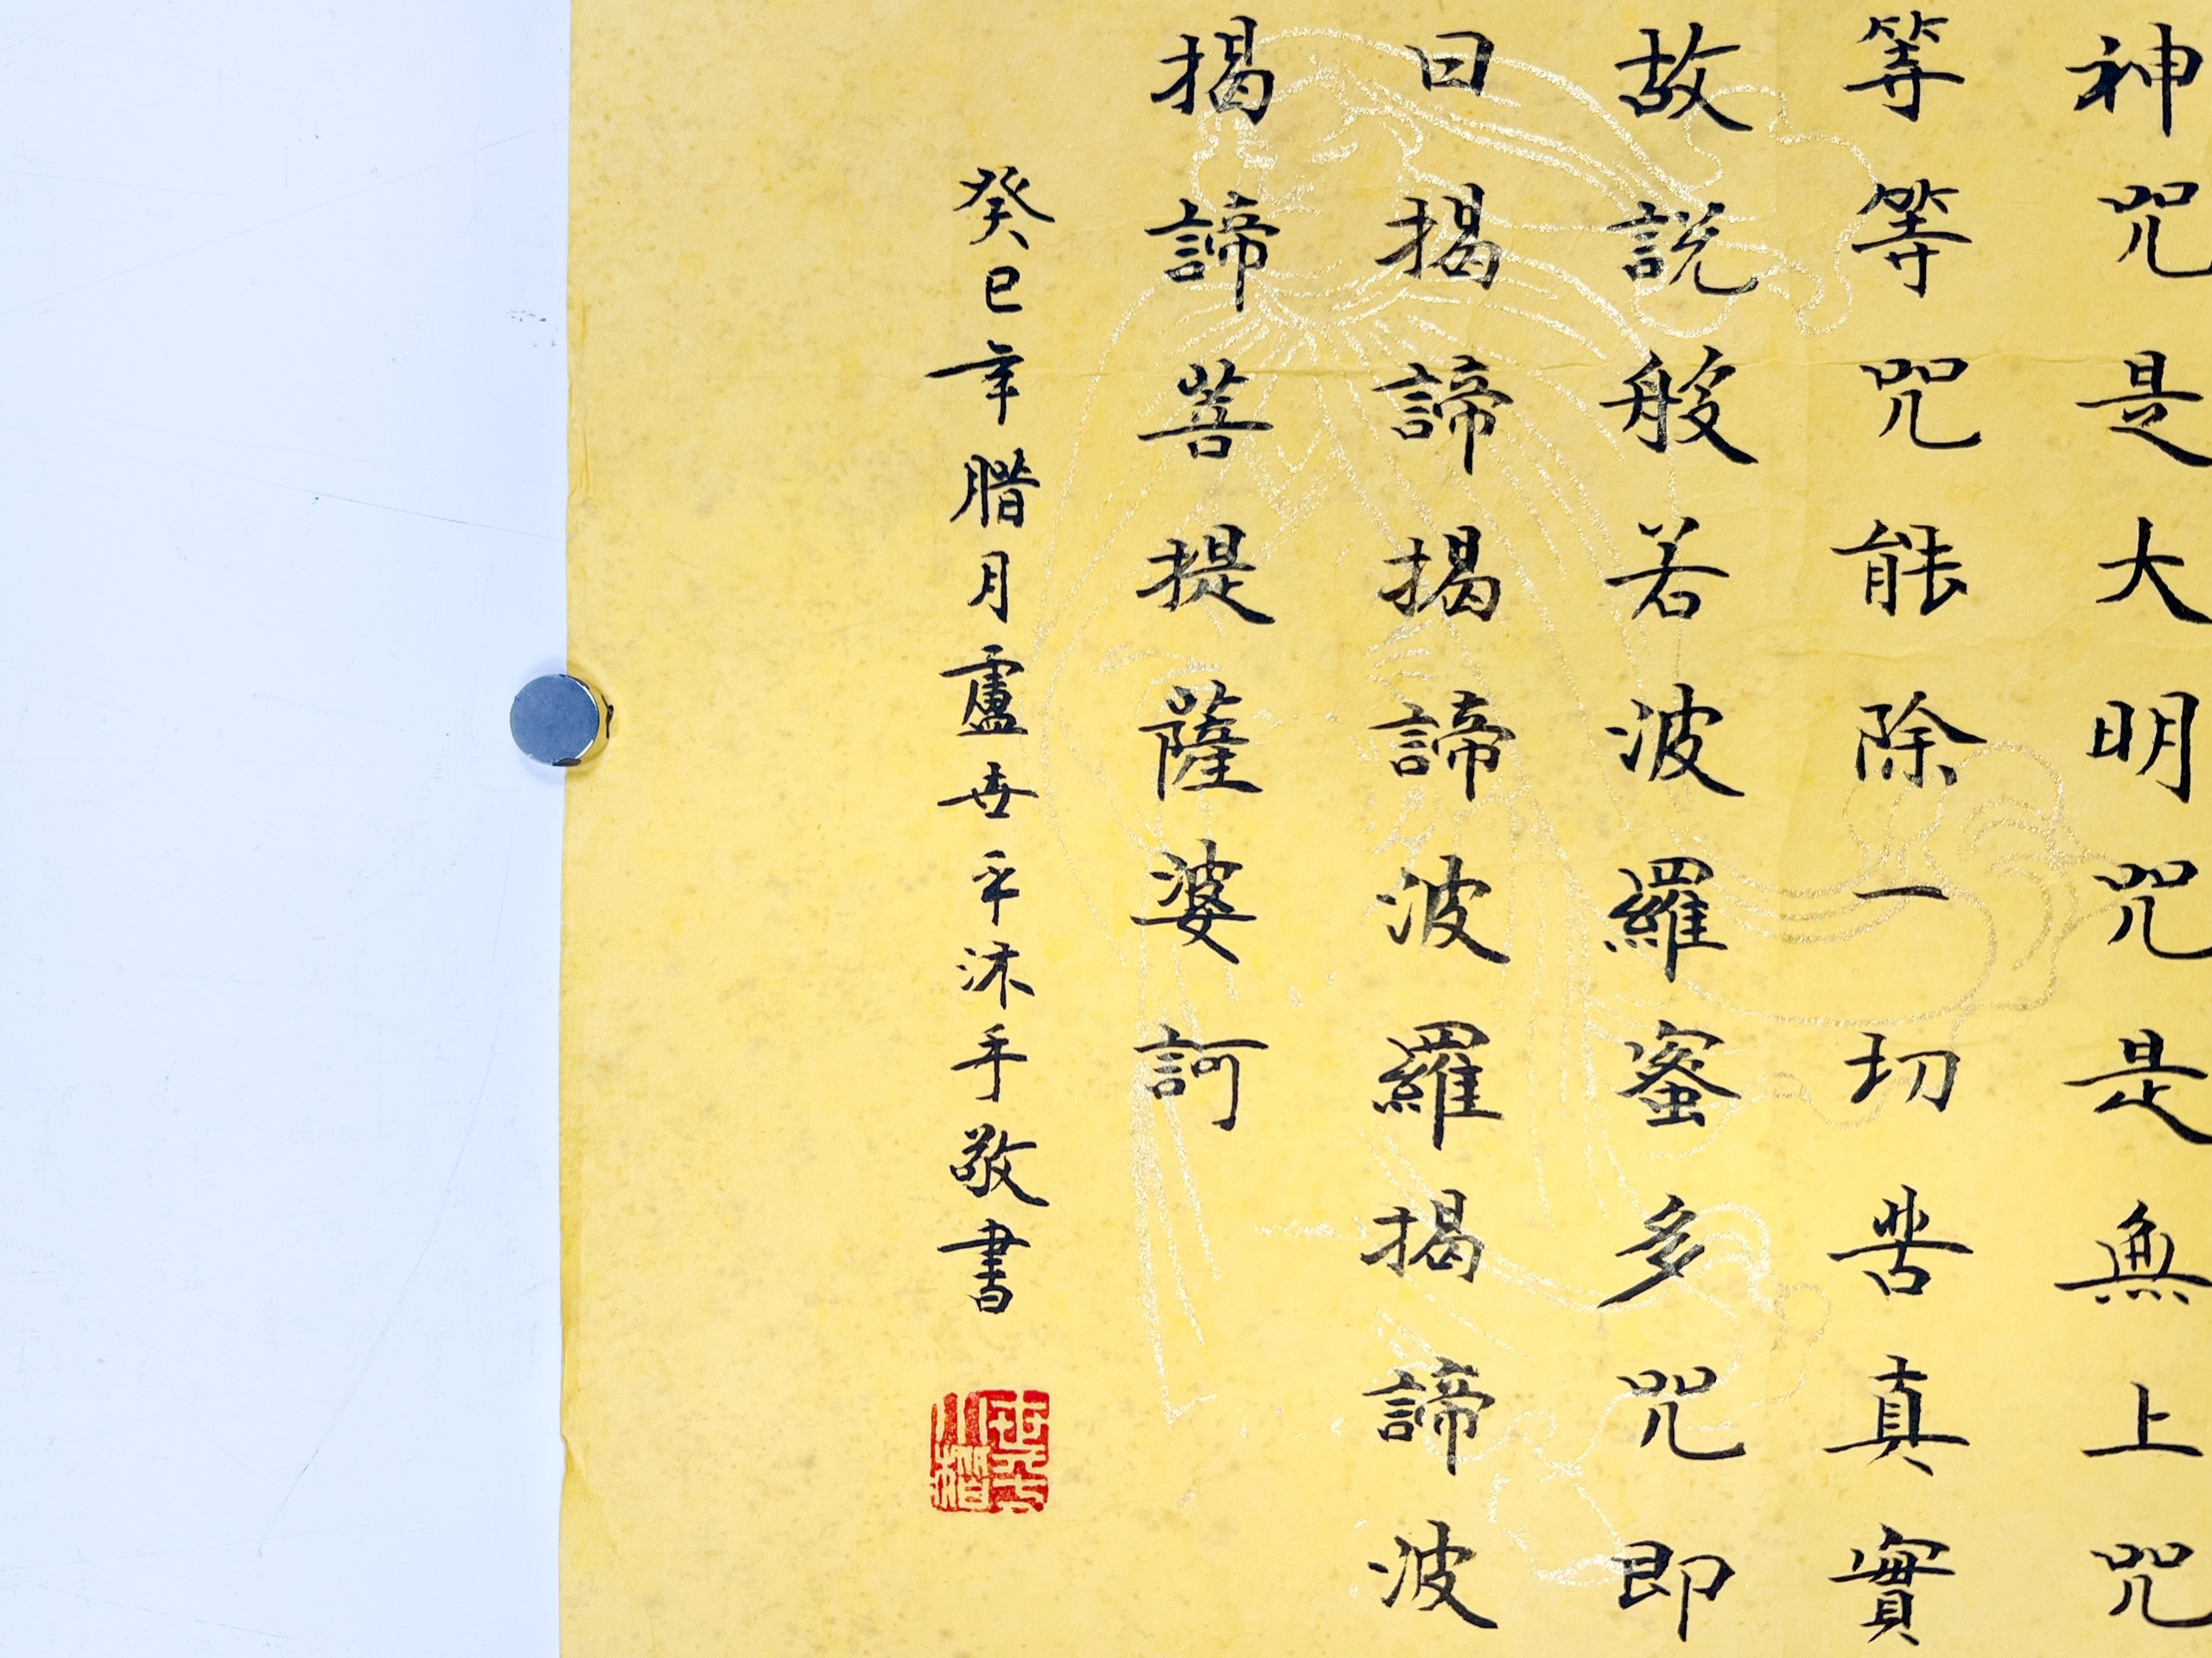 神咒是大明咒是無上咒
等等咒能除一切苦真實
故說般若波羅蜜多咒即
曰揭諦揭諦波羅揭諦波
揭諦菩提薩婆訶
癸巳年腊月盧世平沐手敬書